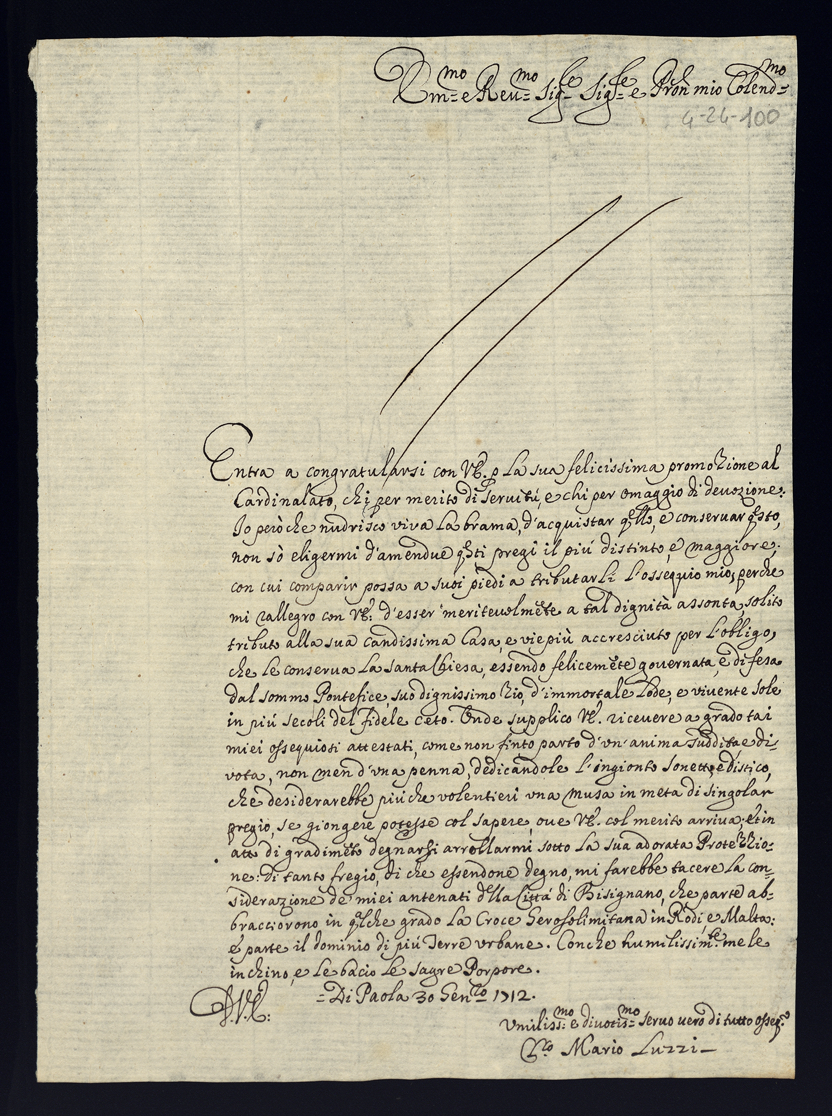 Em.mo e Reu.mo Sig.re Sig.re e Pron mio Colend.mo
4-24-100
Entra a congratularsi con VE. p La sua felicissima promozione al
Cardinalato, chi per merito di servitù, e chi per omaggio di devozione.
Io però che nudrisco viva La brama, d'acquistar q.llo, e conservar q.sto,
non sò eligermi d'amendue q.sti pregi il più distinto, e maggiore;
con cui comparir possa a suoi piedi a tributarLi L'ossequio mio; perche
mi rallegro con VE. d'esser meritevolmēte a tal dignità assonta, solito
tributo alla sua candissima Casa, e vie più accresciuto per L'obligo,
che Le conserva La Santa Chiesa, essendo felicemēte governata, e difesa
dal sommo Pontefice, suo dignissimo Zio, d'immortale Lode, e vivente sole
in più secoli del fidele ceto. Onde supplico VE. ricevere a grado tai
miei ossequiosi attestati, come non finto parto d'un'anima suddita e di-
vota, non men d'una penna, dedicandole L'ingionto sonetto, e distico,
che desiderarebbe più che volentieri una musa in meta di singolar
pregio, se giongere potesse col sapere, ove VE. col merito arriva; et in
att.o di gradimēto degnarsi arrollarmi sotto La sua adorata Protezzio-
ne: di tanto fregio, di che essendone degno, mi farebbe tacere La con-
siderazione de miei antenati d'lla Città di Bisignano, che parte ab-
bracciorono in q.lche grado La Croce Gerosolimitana in Rodi e Malta:
e parte il dominio di più Terre urbane. Con che humilissim.te me le
inchino, e Le bacio Le sagre Porpore.
D.V.E: = Di Paola 30 Gen.ro 1712.
Umiliss.mo e divotis.mo servo vero di tutto osseq.o
Mario Luzzi